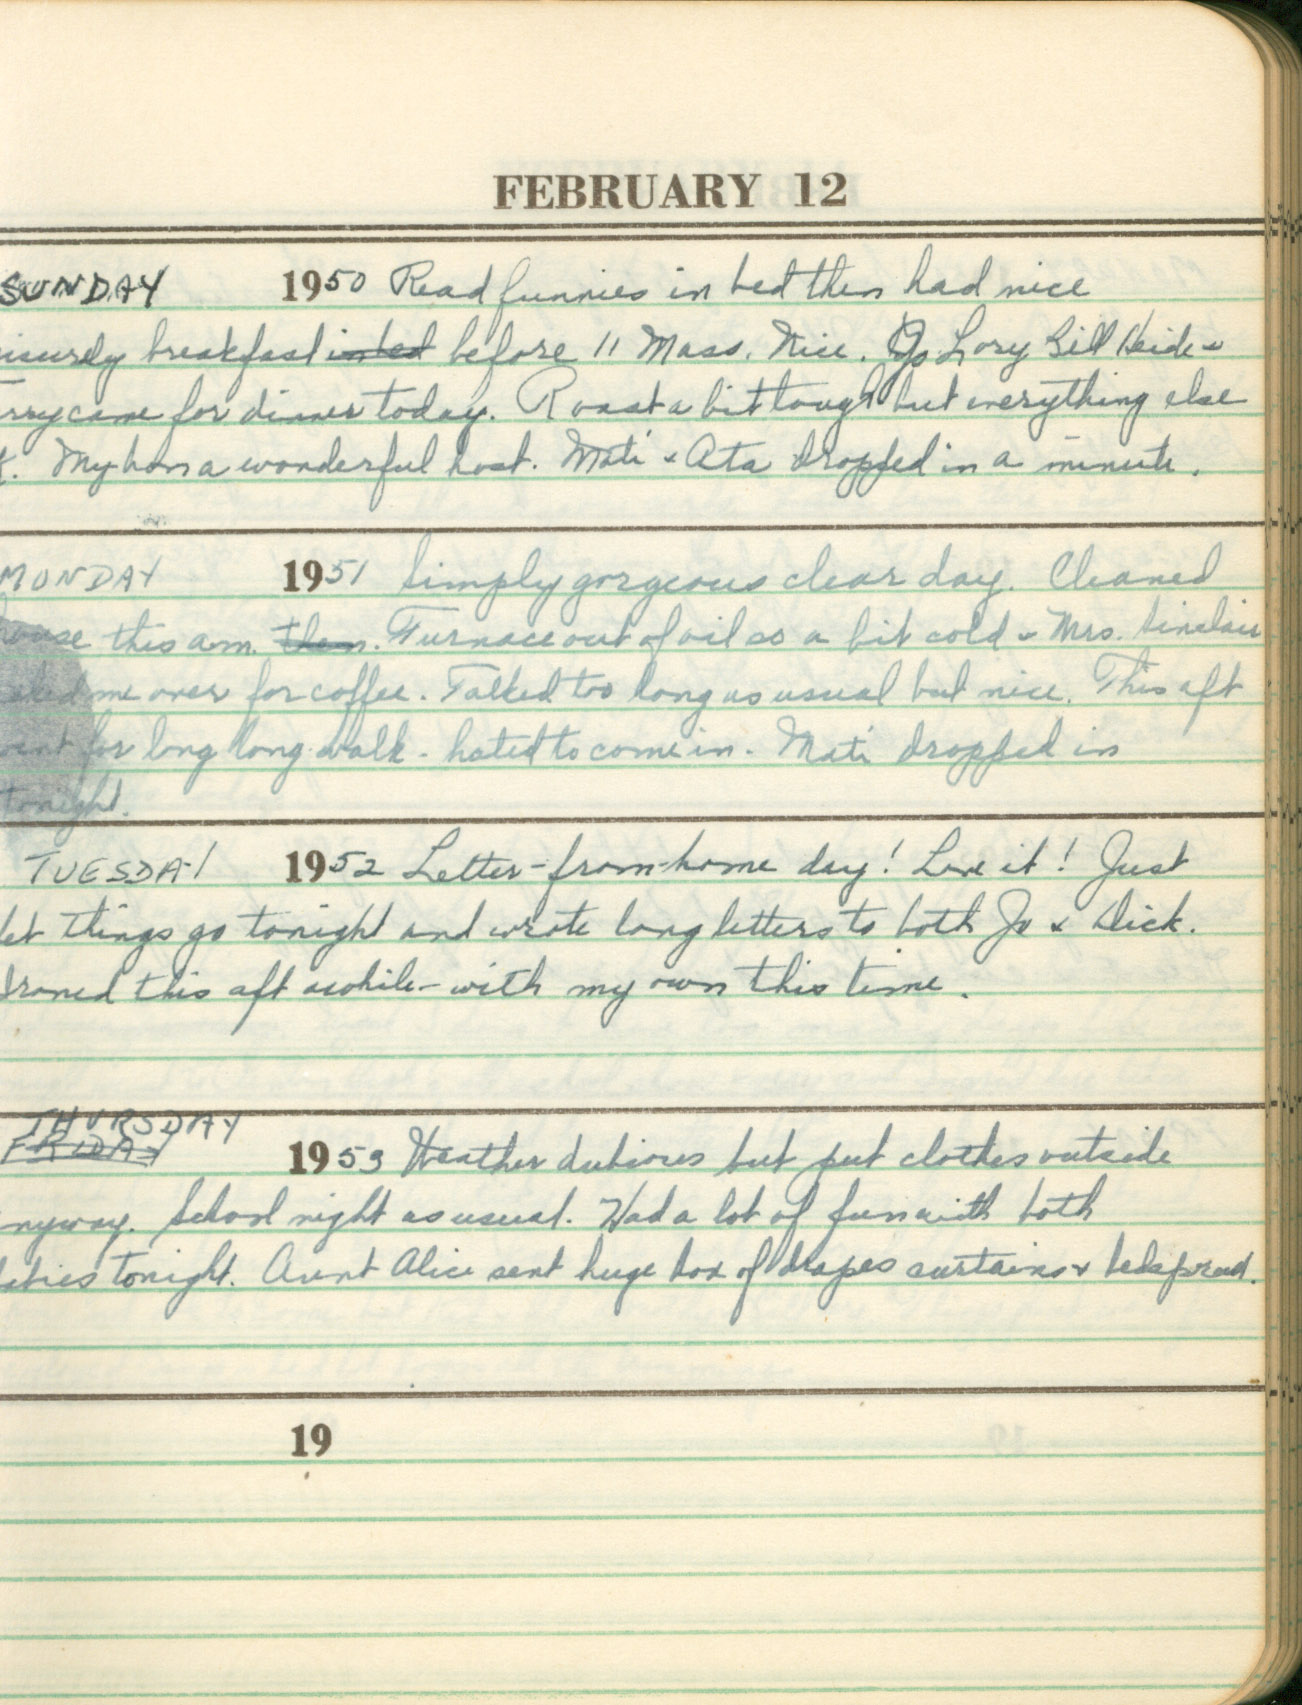 FEBRUARY 12
SUNDAY 1950 Read funnies in bed then had nice
isurely breakfast in bed before 11 Mass. Nice. Jo Lory Bill Heide &
rry came for dinner today. Roast a bit tough but everything else
K. My hon a wonderful host. Mati & Ata dropped in a minute.
MONDAY 1951 Simply gorgeous clear day. Cleaned
house this a.m. then. Furnace out of oil so a bit cold & Mrs. Sinclair
asked me over for coffee. Talked too long as usual but nice. This aft
went for long long walk - hated to come in. Mati dropped in
tonight.
TUESDAY 1952 Letter-from-home day! Love it! Just
let things go tonight and wrote long letters to both Jo & Dick.
Ironed this aft awhile - with my own this time.
THURSDAY
FRIDAY 1953 Weather dubious but put clothes outside
nyway. School night as usual. Had a lot of fun with both
babies tonight. Aunt Alice sent huge box of drapes curtains & bedspread.
19